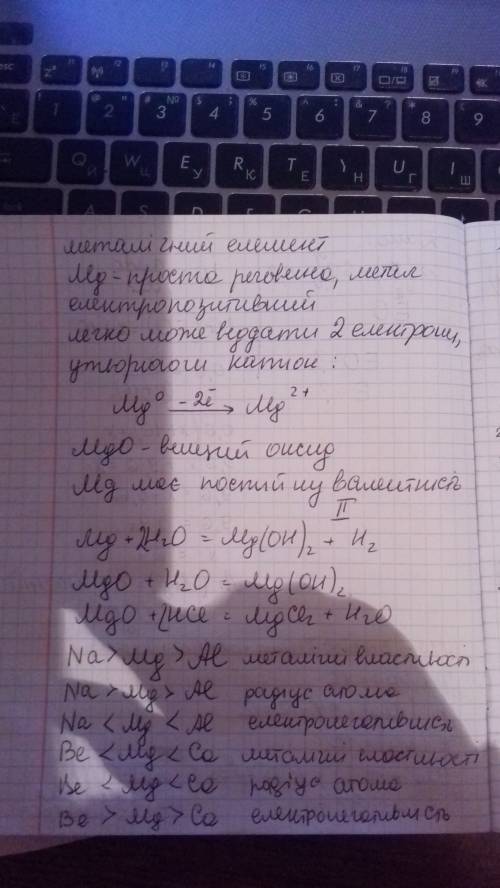 esc
F1 F2 F3 F4 F5 F6 F7 F8 F9
! 1 @ 2 " # 3 № $ 4 ; % 5 ^ 6 : & 7 ? * 8 ( 9
Q Й W Ц E У R К T Е Y Н U Г I Ш
A S D F G H J
металічний елемент
Mg - проста речовина, метал
електропозитивний
легко може віддати 2 електрони,
утворюючи катіон :
Mg⁰ —-2ē→ Mg²⁺
MgO - вищий оксид
Mg має постійну валентність
II
Mg + 2H₂O = Mg(OH)₂ + H₂
MgO + H₂O = Mg(OH)₂
MgO + 2HCl = MgCl₂ + H₂O
Na > Mg > Al металічні властивості
Na > Mg > Al радіус атома
Na < Mg < Al електронегативність
Be < Mg < Ca металічні властивості
Be < Mg < Ca радіус атома
Be > Mg > Ca електронегативність